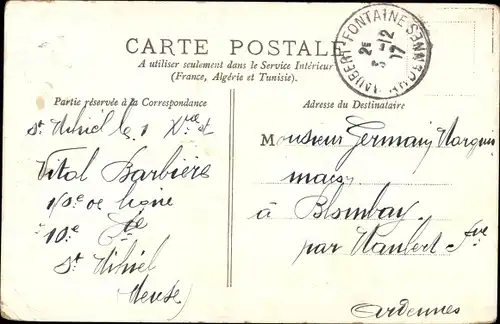 CARTE POSTALE
A utiliser seulement dans le Service Intérieur
(France, Algérie et Tunisie).
MAUBERT-FONTAINE ARDENNES
2E
3-12
17
Partie réservée à la Correspondance
Adresse du Destinataire
St Mihiel le 1 Xbre
Vital Barbière
de ligne
10e Cie
St Mihiel
Meuse)
Monsieur Germain
à Blombay
par Maubert Fne
Ardennes